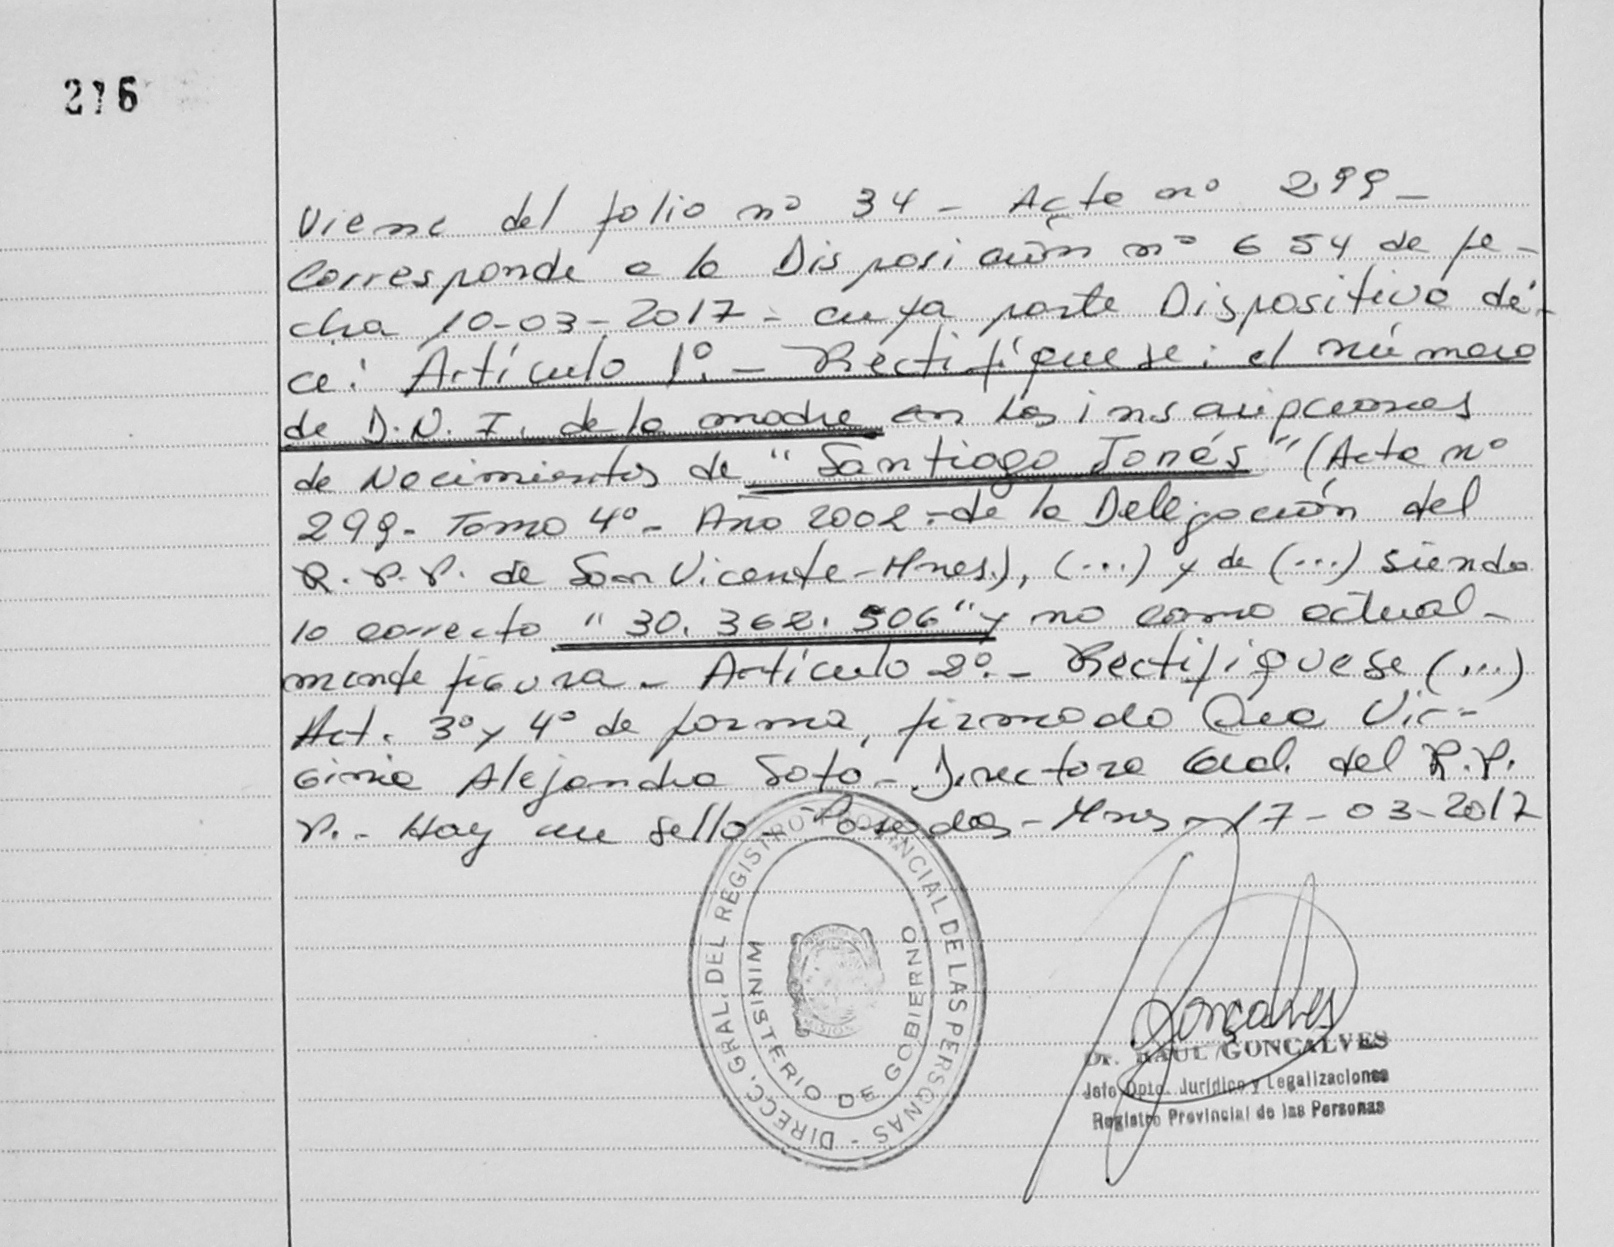 216
Viene del folio nº 34 - Acta nº 299 -
Corresponde a la Disposición nº 654 de fe-
cha 10-03-2017 - cuya parte Dispositiva di-
ce: Artículo 1º. - Rectifíquese: el número
de D.N.I. de la madre en las inscripciones
de Nacimientos de "Santiago Jonés" (Acta nº
299 - Tomo 4º - Año 2002 - de la Delegación del
R.P.P. de San Vicente - Mnes.), (...) y de (...) siendo
lo correcto "30.362.506" y no como actual-
mente figura - Artículo 2º. - Rectifíquese (...)
Art. 3º y 4º de forma, firmado Dra Vir-
ginia Alejandra Soto - Directora Gral. del R.P.
P. - Hay un sello - Posadas - Mnes - 17-03-2017
DIRECC. GRAL. DEL REGISTRO PROVINCIAL DE LAS PERSONAS -
MINISTERIO DE GOBIERNO
Gonçalves
Dr. RAUL GONCALVES
Jefe Dpto. Jurídico y Legalizaciones
Registro Provincial de las Personas